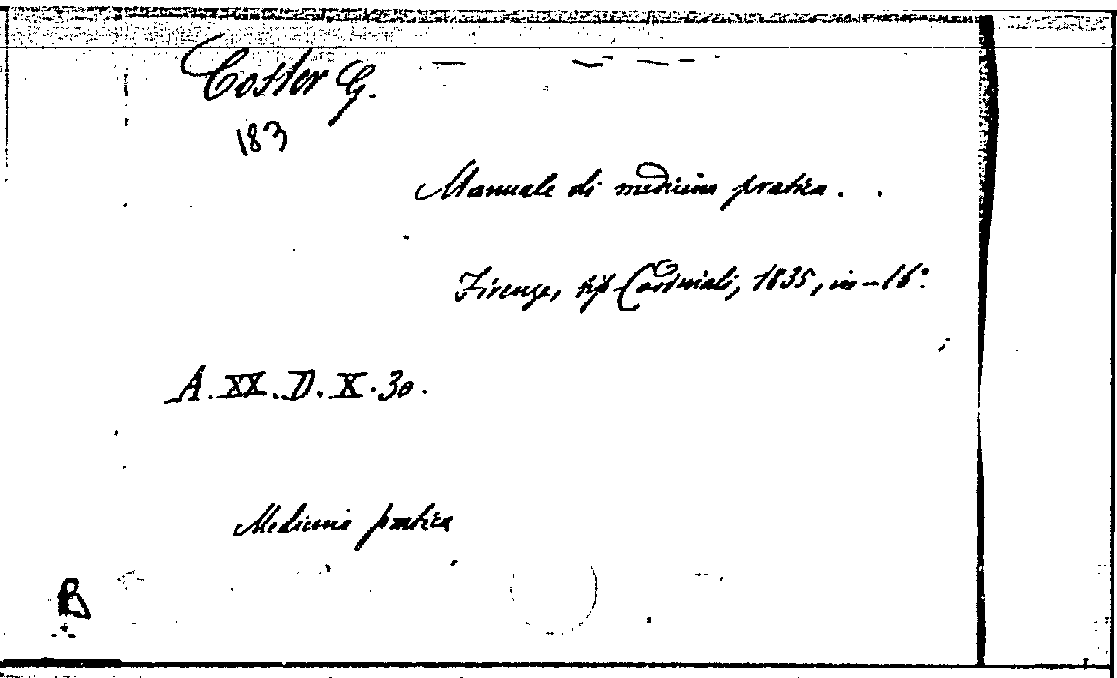 Coster G.
183
Manuale di medicina pratica.
Firenze, tip Cardinali, 1835, in-16°.
A. XX. D. X. 30.
Medicina pratica
B